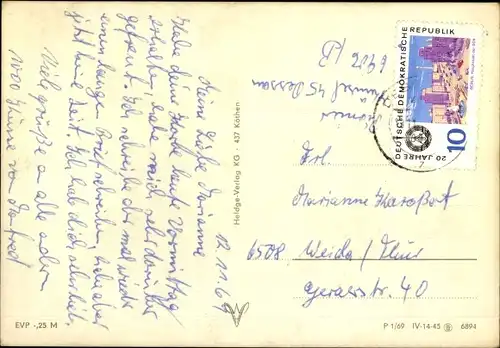 12.11.69
Meine liebe Marianne
Habe deine Karte heute Vormittag
erhalten, habe mich sehr darüber
gefreut. Ich schreibe dir mal wieder
einen langen Brief schreiben, habe aber
jetzt keine Zeit. Ich hab dich sehr lieb.
Viele grüße an alle andern
1000 Küsse von Manfred
Heldge-Verlag KG - 437 Köthen
EVP -,25 M
P 1/69 IV-14-45 6894
DEUTSCHE DEMOKRATISCHE REPUBLIK
20 JAHRE
10
45 Dessau
Frl.
Marianne
6508 Weida / Thür
Geraerstr. 40